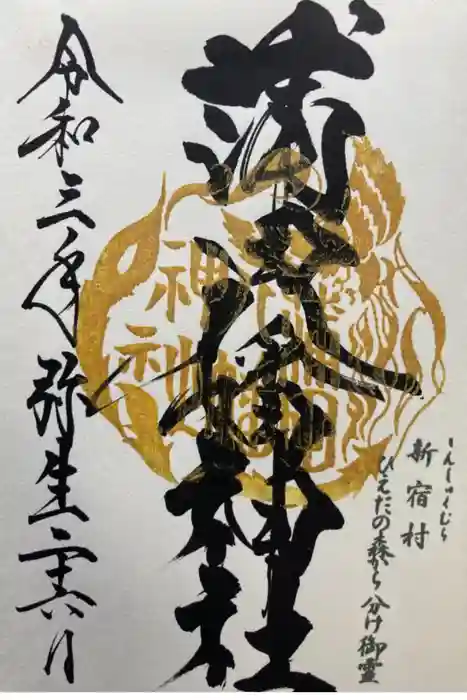 しんしゅくむら
新宿村
ひえだの森から分け御霊
蒲田八幡神社
蒲田
八幡
神社
令和三年弥生二十六日